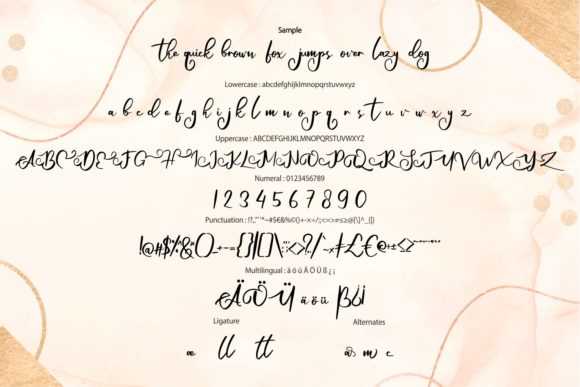 Sample
the quick brown fox jumps over lazy dog
Lowercase : abcdefghijklmnopqrstuvwxyz
a b c d e f g h i j k l m n o p q r s t u v w x y z
Uppercase : ABCDEFGHIJKLMNOPQRSTUVWXYZ
ABCDEFGHIJKLMNOPQRSTUVWXYZ
Numeral : 0123456789
1 2 3 4 5 6 7 8 9 0
Multilingual : ä ö ü Ä Ö Ü ß ¿ ¡
Ä Ö Ü ä ö ü ß ¿ ¡
Ligature Alternates
æ ll tt m c